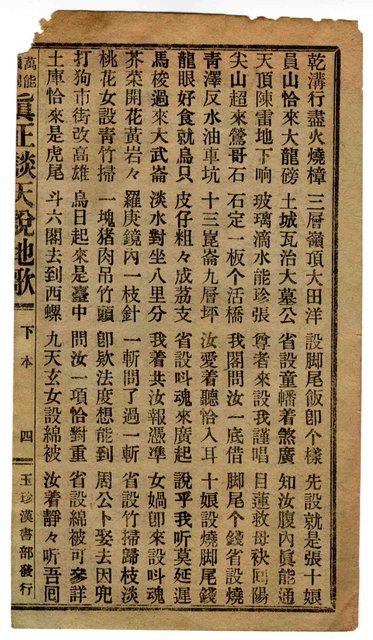 乾溝行盡火燒樟　三層嶺頂大田洋　設脚尾飯卽个樣　先設就是張十娘
員山恰來大龍磅　土城瓦治大墓公　省設童幡着煞廣　知汝腹內眞能通
天頂陳雷地下响　玻璃滴水能珍張　尊者來設我謹唱　目蓮救母袂回陽
尖山超來鶯哥石　石定一板个活橋　我閣問汝一底借　脚尾个錢省設燒
青澤反水油車坑　十三崑崙九層坪　汝愛着聽恰入耳　十娘設燒脚尾錢
龍眼好食就鳥只　皮仔粗々成荔支　省設叫魂來廣起　說乎我听莫延遲
馬梭過來大武崙　淡水對坐八里分　我着共汝報憑準　女媧卽來設叫魂
芥菜開花黃岩々　羅庚鏡內一枝針　一斬問了過一斬　省設竹掃歸枝淡
桃花女設青竹掃　一塊猪肉吊竹頭　卽欵法度想能到　周公卜娶去因兜
打狗市街改高雄　烏日起來是臺中　問汝一項恰對重　省設綿被可參詳
土庫恰來是虎尾　斗六閣去到西螺　九天玄女設綿被　汝着靜々听吾回
萬能
眞正談天說地歌　下本　四　玉珍漢書部發行